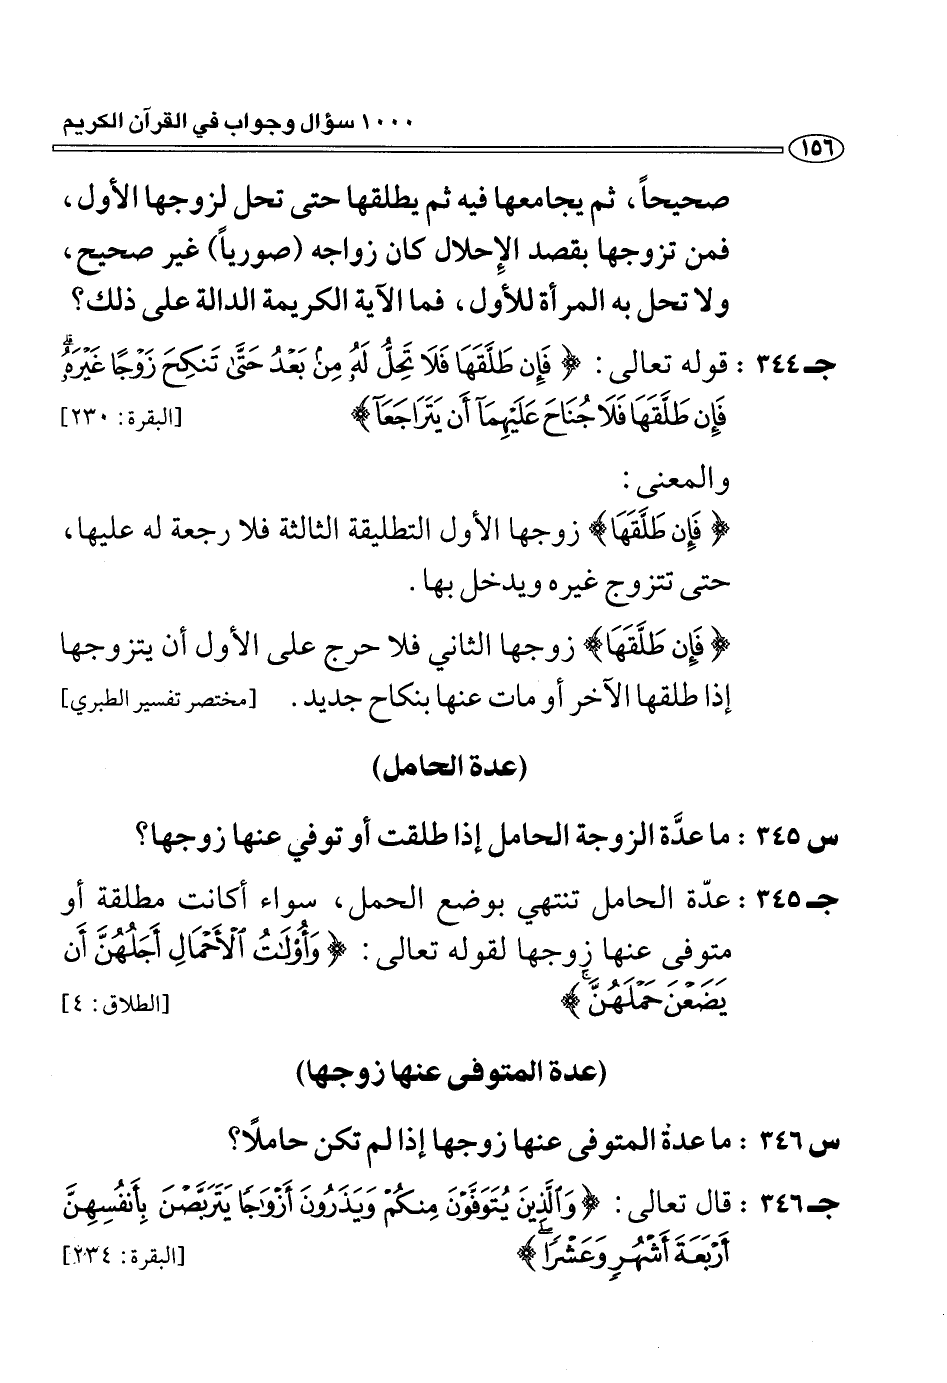 ١٠٠٠ سؤال وجواب في القرآن الكريم
١٥٦
صحيحاً، ثم يجامعها فيه ثم يطلقها حتى تحل لزوجها الأول،
فمن تزوجها بقصد الإحلال كان زواجه (صورياً) غير صحيح،
ولا تحل به المرأة للأول، فما الآية الكريمة الدالة على ذلك؟
جـ ٣٤٤ : قوله تعالى : ﴿ فَإِن طَلَّقَهَا فَلَا تَحِلُّ لَهُ مِنۢ بَعْدُ حَتَّىٰ تَنكِحَ زَوْجًا غَيْرَهُۥ ۗ
فَإِن طَلَّقَهَا فَلَا جُنَاحَ عَلَيْهِمَآ أَن يَتَرَاجَعَآ ﴾ [البقرة: ٢٣٠]
والمعنى :
﴿ فَإِن طَلَّقَهَا ﴾ زوجها الأول التطليقة الثالثة فلا رجعة له عليها،
حتى تتزوج غيره ويدخل بها .
﴿ فَإِن طَلَّقَهَا ﴾ زوجها الثاني فلا حرج على الأول أن يتزوجها
إذا طلقها الآخر أو مات عنها بنكاح جديد . [مختصر تفسير الطبري]
(عدة الحامل)
س ٣٤٥ : ما عدَّة الزوجة الحامل إذا طلقت أو توفي عنها زوجها؟
جـ ٣٤٥ : عدّة الحامل تنتهي بوضع الحمل، سواء أكانت مطلقة أو
متوفى عنها زوجها لقوله تعالى : ﴿ وَأُو۟لَٰتُ ٱلْأَحْمَالِ أَجَلُهُنَّ أَن
يَضَعْنَ حَمْلَهُنَّ ۚ ﴾ [الطلاق: ٤]
(عدة المتوفى عنها زوجها)
س ٣٤٦ : ما عدة المتوفى عنها زوجها إذا لم تكن حاملًا؟
جـ ٣٤٦ : قال تعالى : ﴿ وَٱلَّذِينَ يُتَوَفَّوْنَ مِنكُمْ وَيَذَرُونَ أَزْوَٰجًا يَتَرَبَّصْنَ بِأَنفُسِهِنَّ
أَرْبَعَةَ أَشْهُرٍ وَعَشْرًا ۖ ﴾ [البقرة: ٢٣٤]